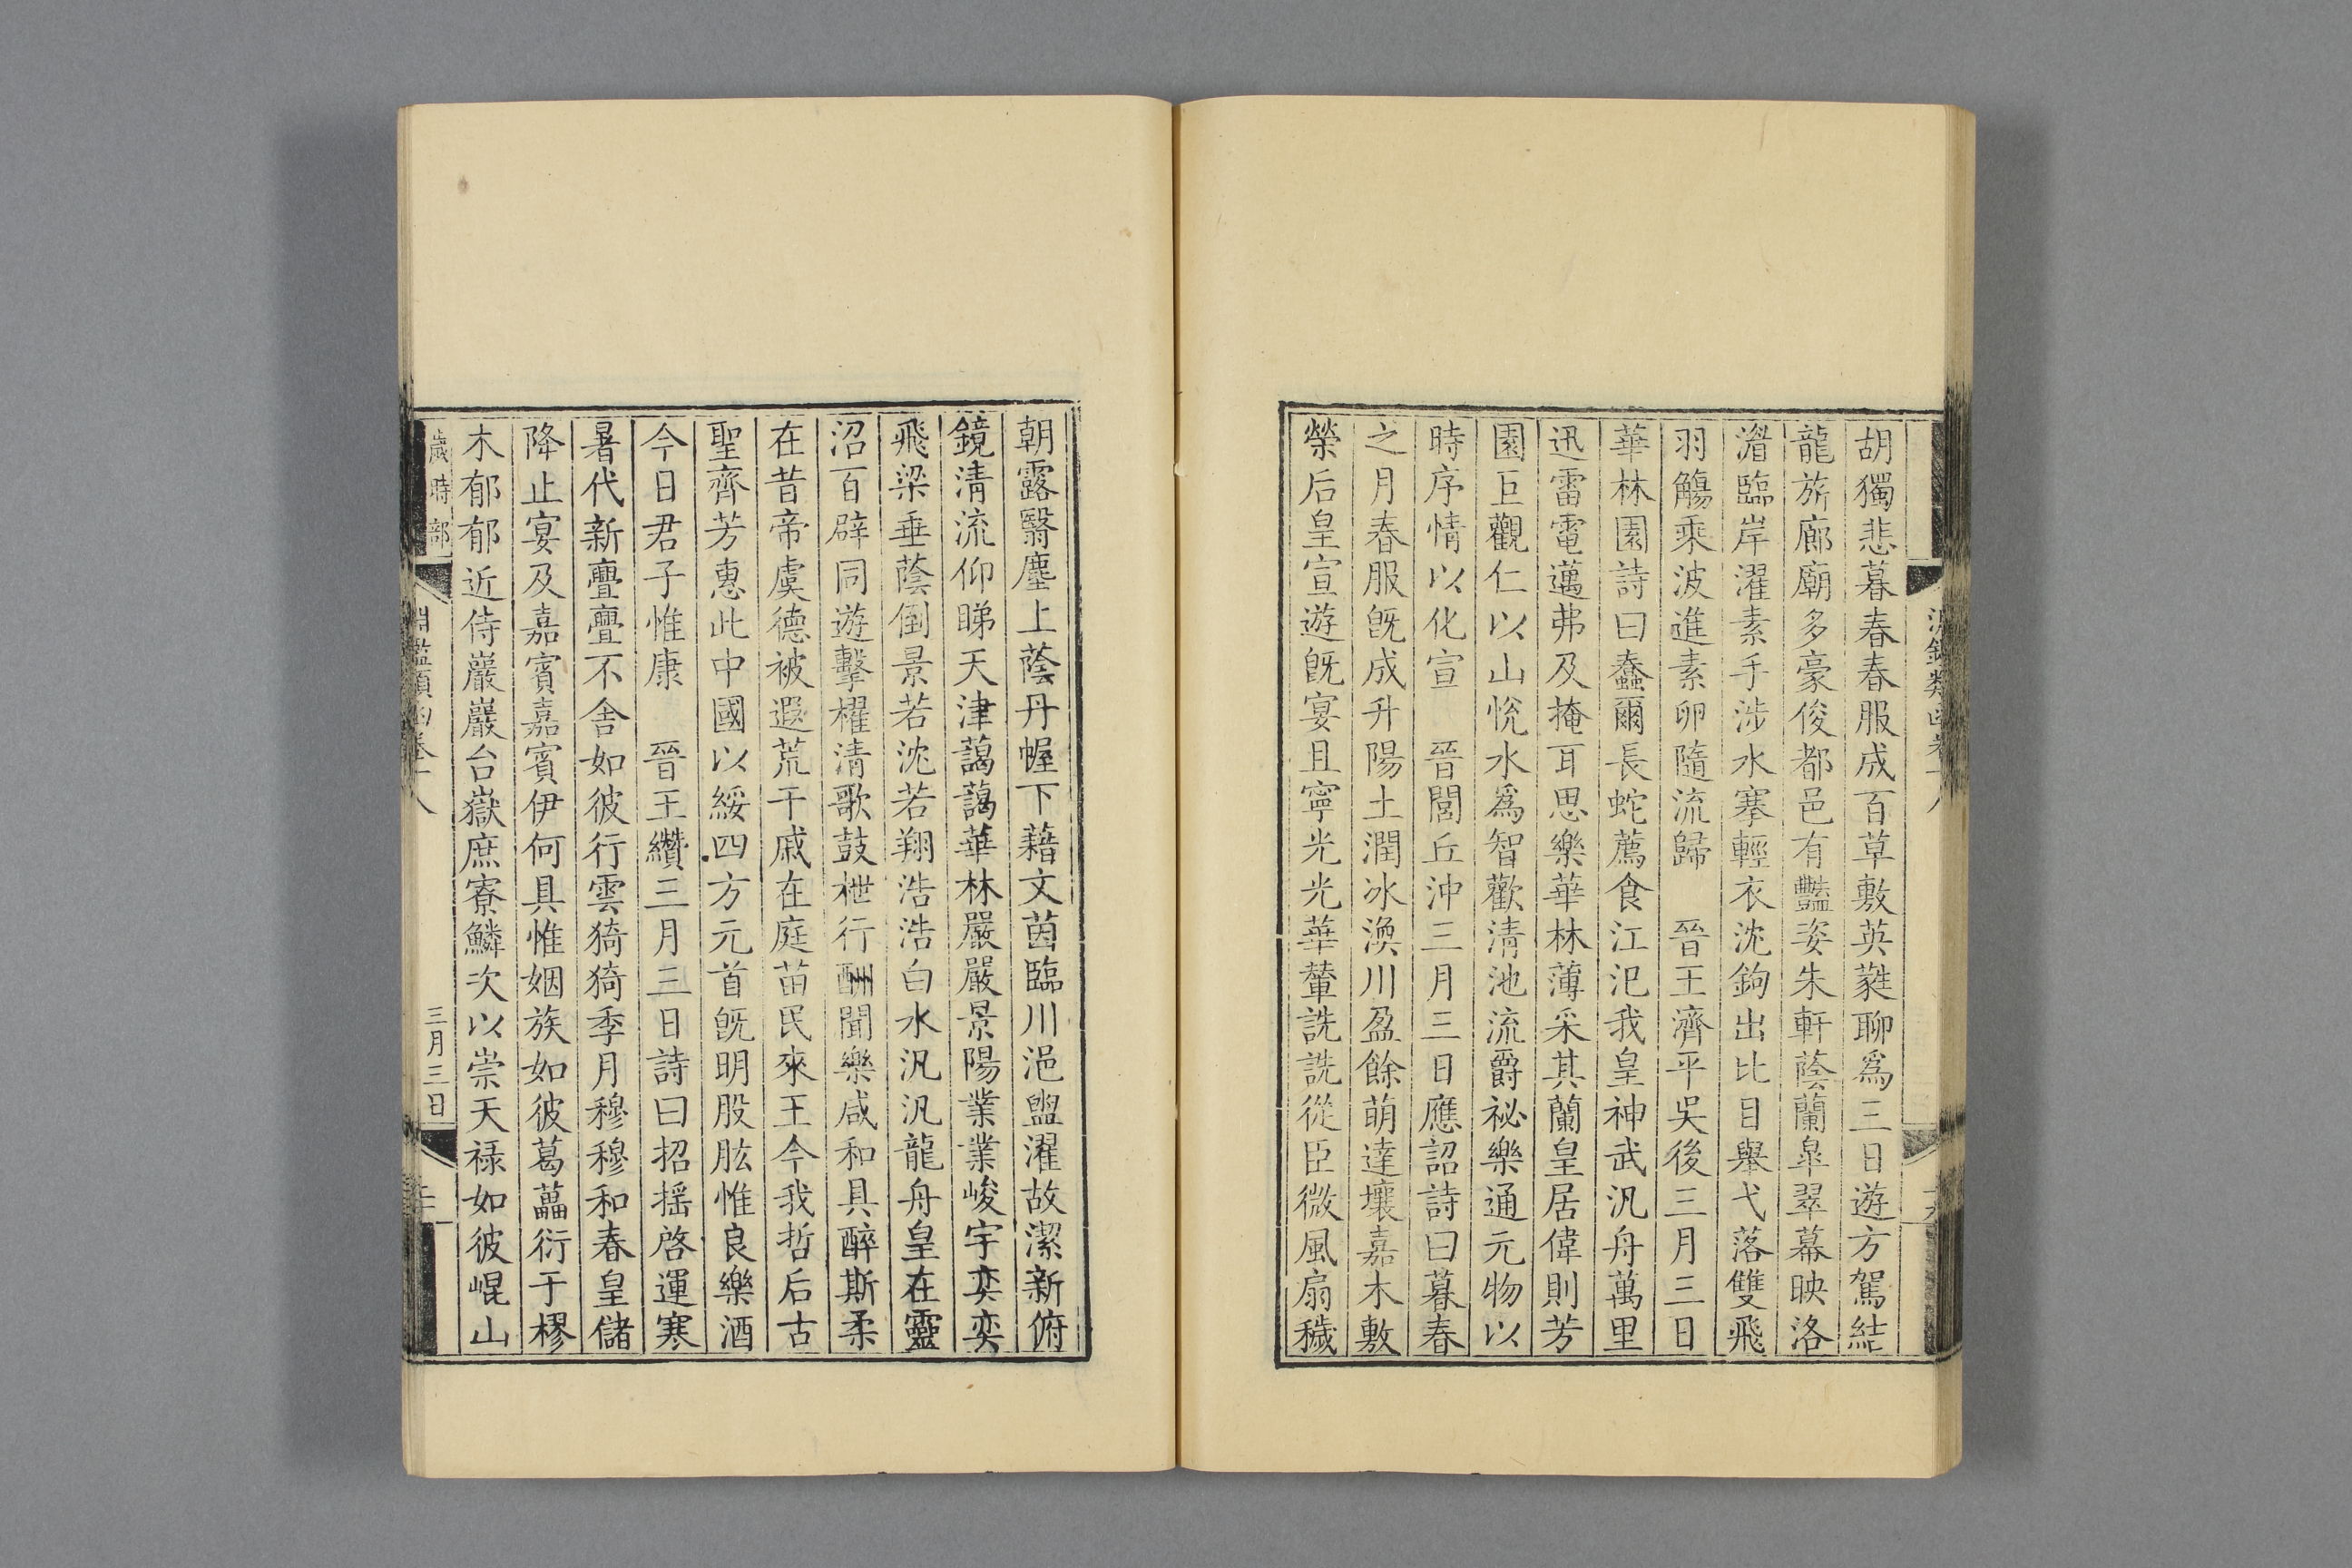 胡獨悲暮春春服成百草敷英蕤聊為三日遊方駕結
龍旂廊廟多豪俊都邑有豔姿朱軒蔭蘭皐翠幕映洛
湄臨岸濯素手涉水搴輕衣沈鉤出比目舉弋落雙飛
羽觴乘波進素卵隨流歸　晉王濟平吳後三月三日
華林園詩曰蠢爾長蛇薦食江汜我皇神武汎舟萬里
迅雷電邁弗及掩耳思樂華林薄采其蘭皇居偉則芳
園巨觀仁以山悅水爲智歡清池流爵祕樂通元物以
時序情以化宣　晉閭丘沖三月三日應詔詩曰暮春
之月春服既成升陽土潤冰渙川盈餘萌達壤嘉木敷
榮后皇宣遊既宴且寧光光華輦詵詵從臣微風扇穢
朝露翳塵上蔭丹幄下藉文茵臨川浥盥濯故潔新俯
鏡清流仰睇天津藹藹華林嚴嚴景陽業業峻宇奕奕
飛梁垂蔭倒景若沈若翔浩浩白水汎汎龍舟皇在靈
沼百辟同遊擊櫂清歌鼓枻行酬聞樂咸和具醉斯柔
在昔帝虞德被遐荒干戚在庭苗民來王今我哲后古
聖齊芳惠此中國以綏四方元首既明股肱惟良樂酒
今日君子惟康　晉王纘三月三日詩曰招搖啓運寒
暑代新亹亹不舍如彼行雲猗猗季月穆穆和春皇儲
降止宴及嘉賓嘉賓伊何具惟姻族如彼葛藟衍于樛
木郁郁近侍巖巖台嶽庶寮鱗次以崇天祿如彼崐山
歲時部　淵鑑類函卷十八　三月三日